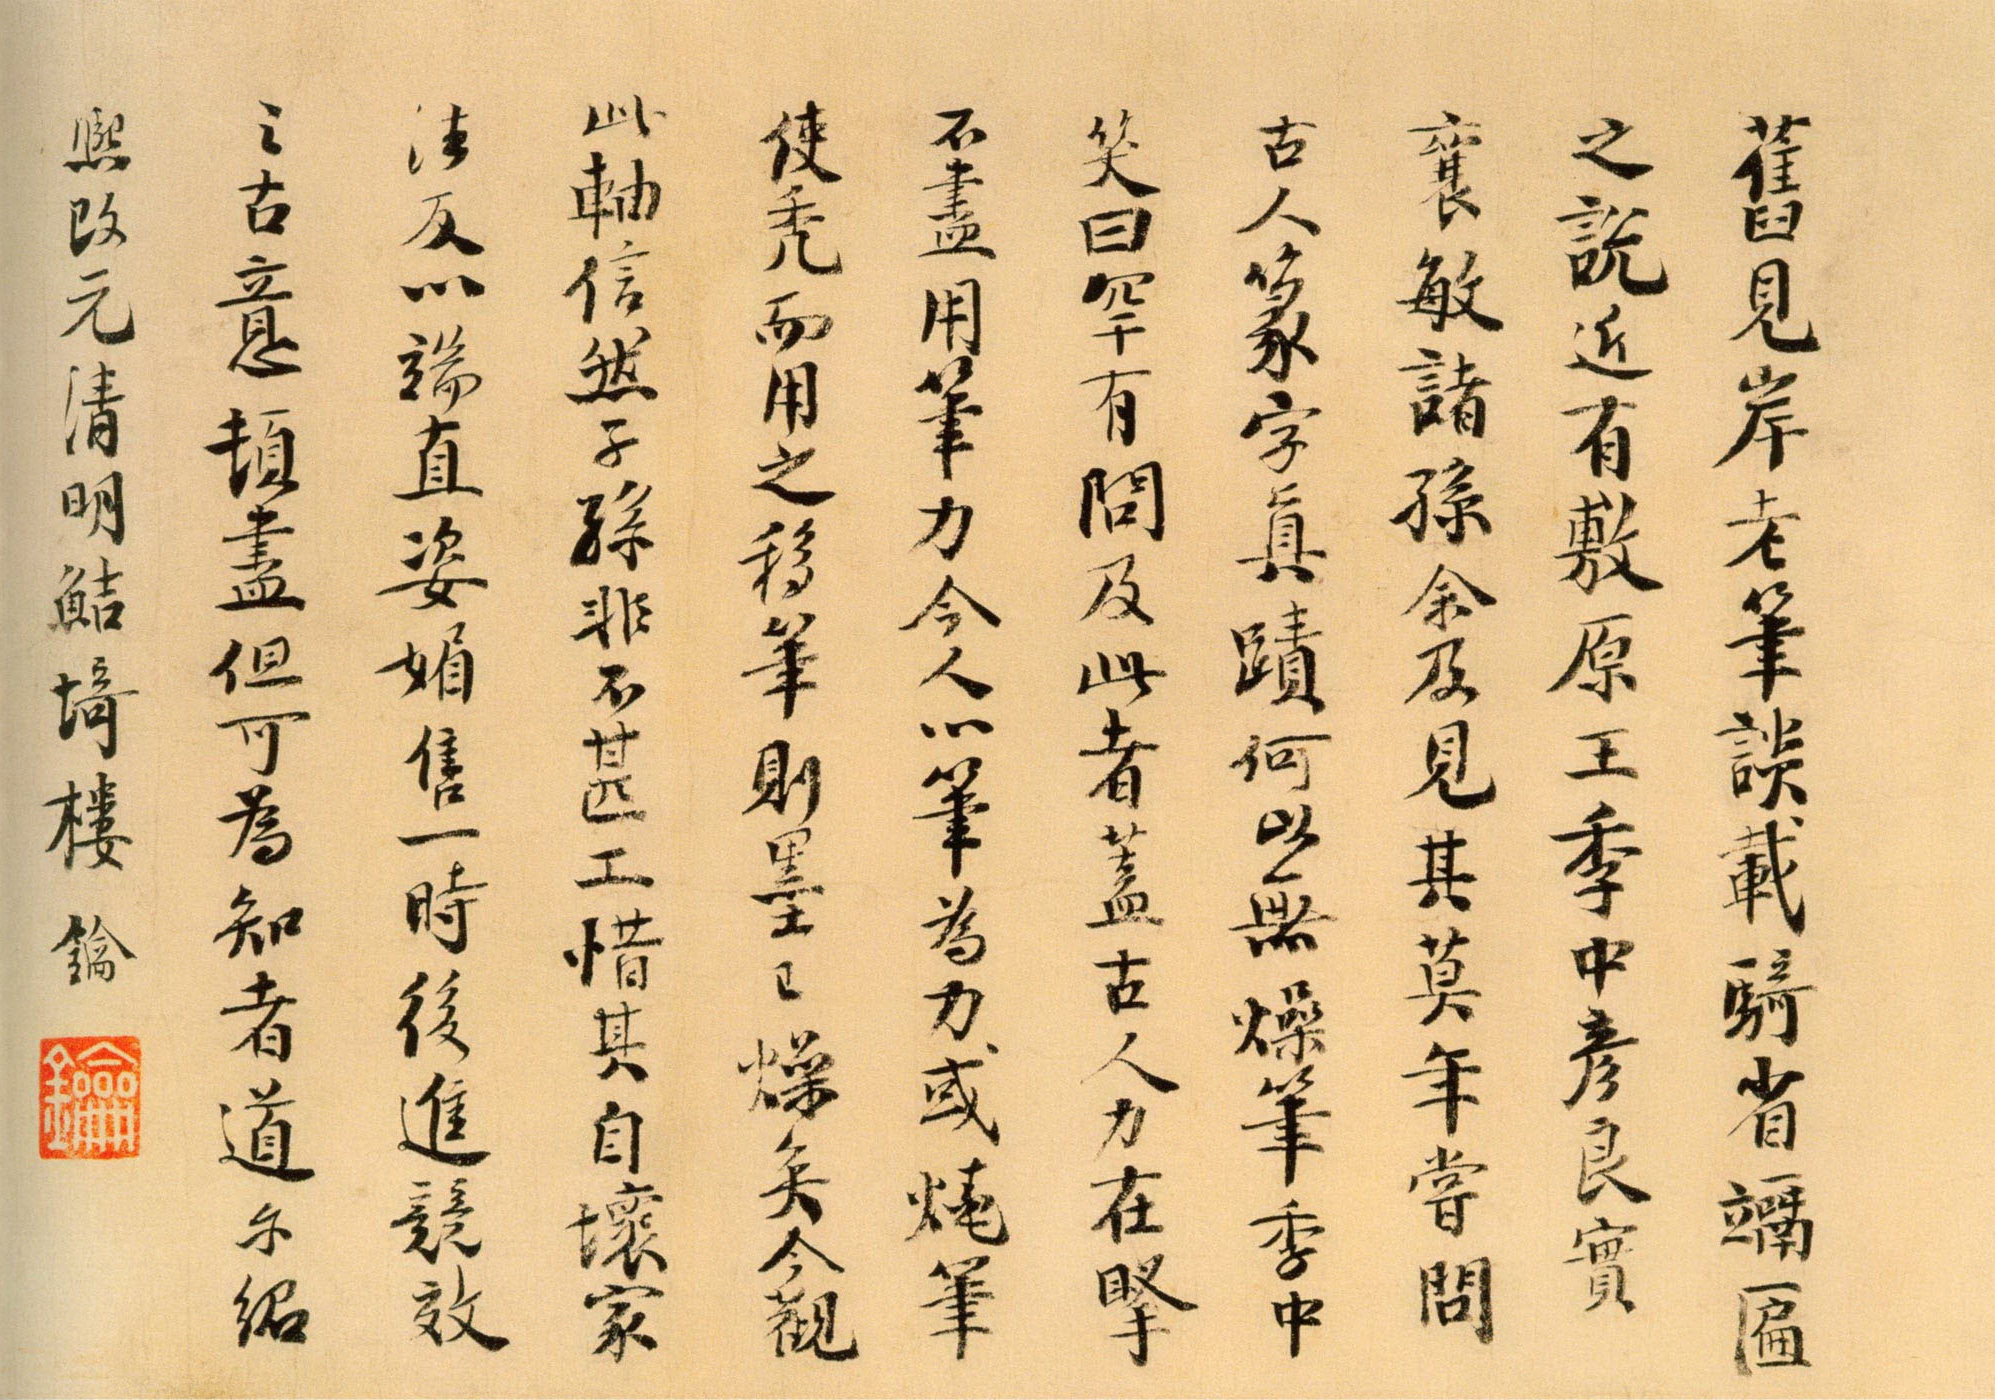 舊見岸老筆談載騎省𥪰匾
之說近有敷原王季中彥良實
襄敏諸孫余及見其莫年嘗問
古人篆字真蹟何以無燥筆季中
笑曰罕有問及此者蓋古人力在掔
不盡用筆力今人以筆為力或燒筆
使禿而用之移筆則墨已燥矣今觀
此軸信然子孫非不甚工惜其自壞家
法反以端直姿媚售一時後進競效
之古意頓盡但可為知者道尔紹
熙改元清明鮚埼樓鑰
鑰